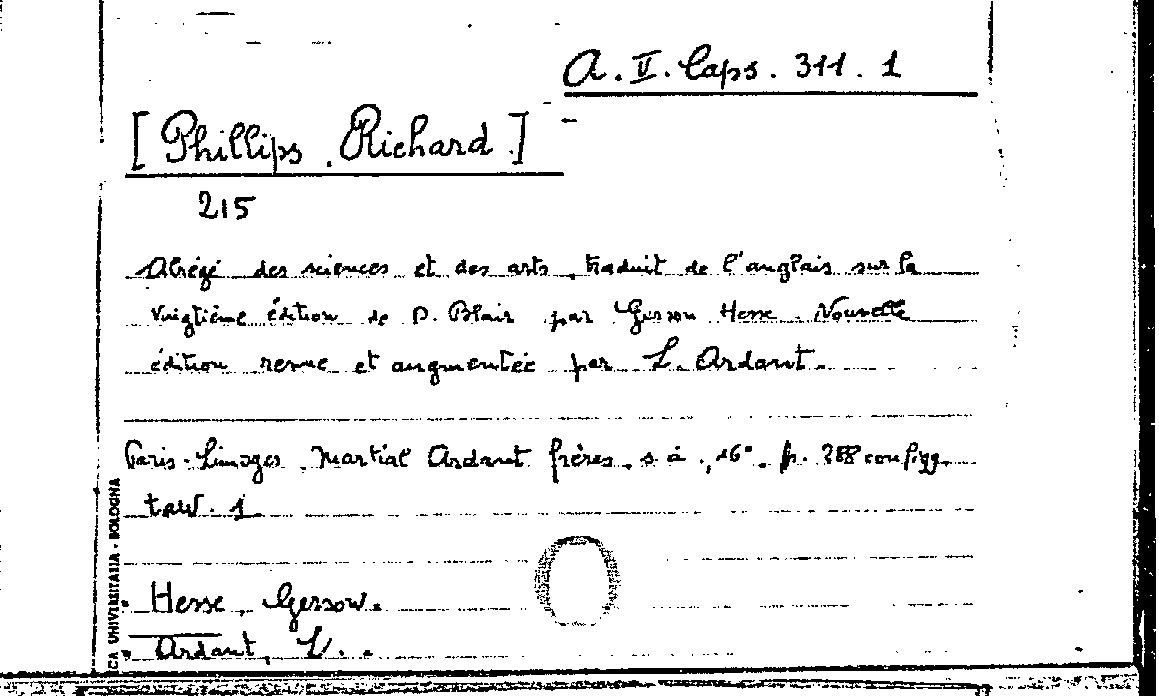 A. V. Caps. 311. 1
[Phillips, Richard]
215
Abrégé des sciences et des arts, traduit de l'anglais sur la
vingtième édition de D. Blair par Gerson Hesse. Nouvelle
édition revue et augmentée par L. Ardant.
Paris-Limoges, Martial Ardant frères, s. a., 16°. p. 288 con figg.
tav. 1
Hesse, Gerson.
Ardant, L.
CA UNIVERSITARIA - BOLOGNA